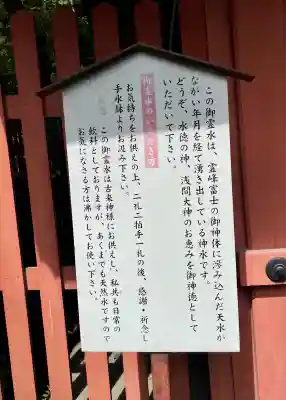 この御霊水は、霊峰富士の御神体に滲み込んだ天水が
ながい年月を経て湧き出している神水です。
どうぞ、水徳の神、浅間大神のお恵みを御神徳として
いただいて下さい。
御霊水のいただき方
お気持ちをお供えの上、二礼二拍手一礼の後、感謝・祈念し
手水鉢よりお汲み下さい。
この御霊水は古来神様にお供えし、私共も日常の
飲料としておりますが、あくまでも天然水ですので
お気になさる方は沸かしてお使い下さい。